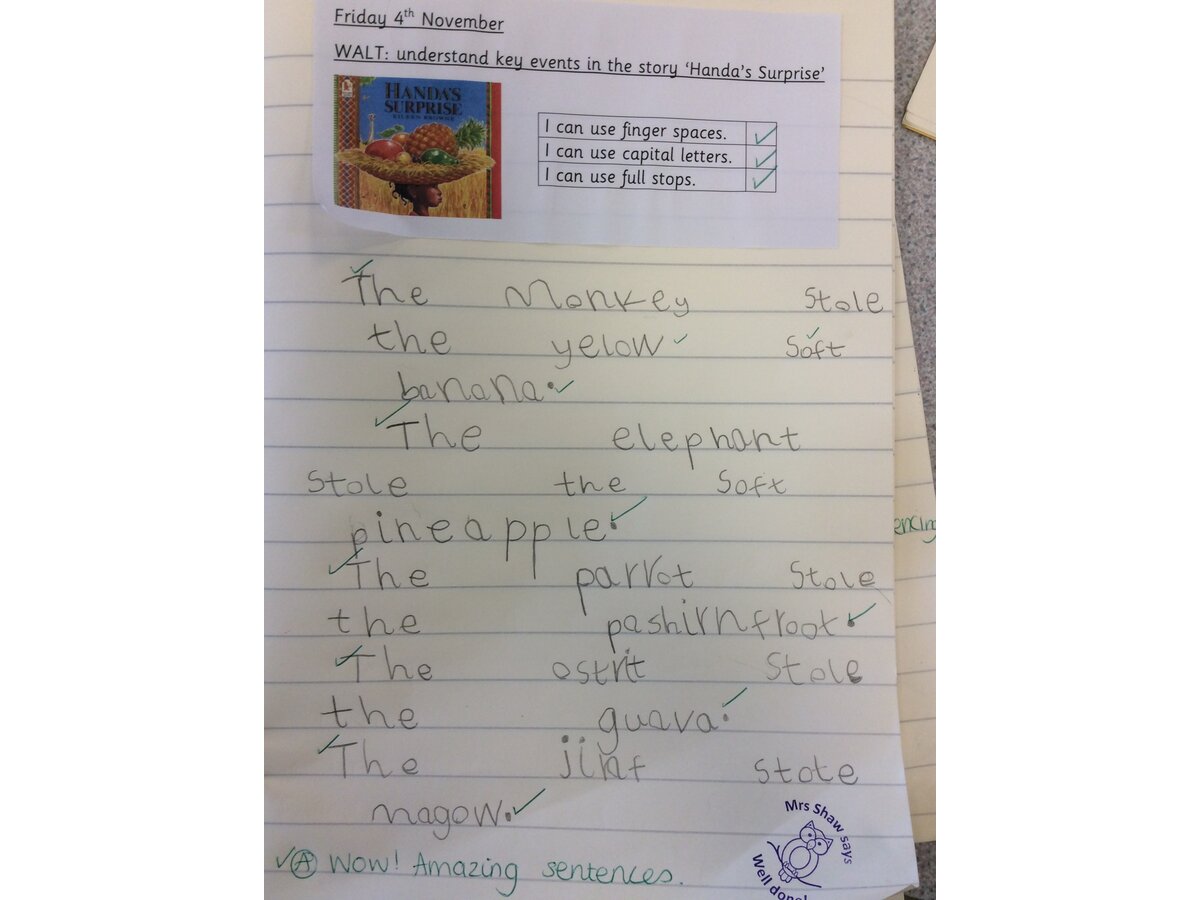 Friday 4th November
WALT: understand key events in the story 'Handa's Surprise'
HANDA'S
SURPRISE
EILEEN BROWNE
I can use finger spaces. ✓
I can use capital letters. ✓
I can use full stops. ✓
The Monkey Stole
the yelow Soft
banana.
The elephant
Stole the Soft
pineapple.
The parrot Stole
the pashirnfroot.
The ostrit Stole
the guava.
The jinf Stote
magow.
✓Ⓐ Wow! Amazing sentences.
Mrs Shaw says
Well done!
encing